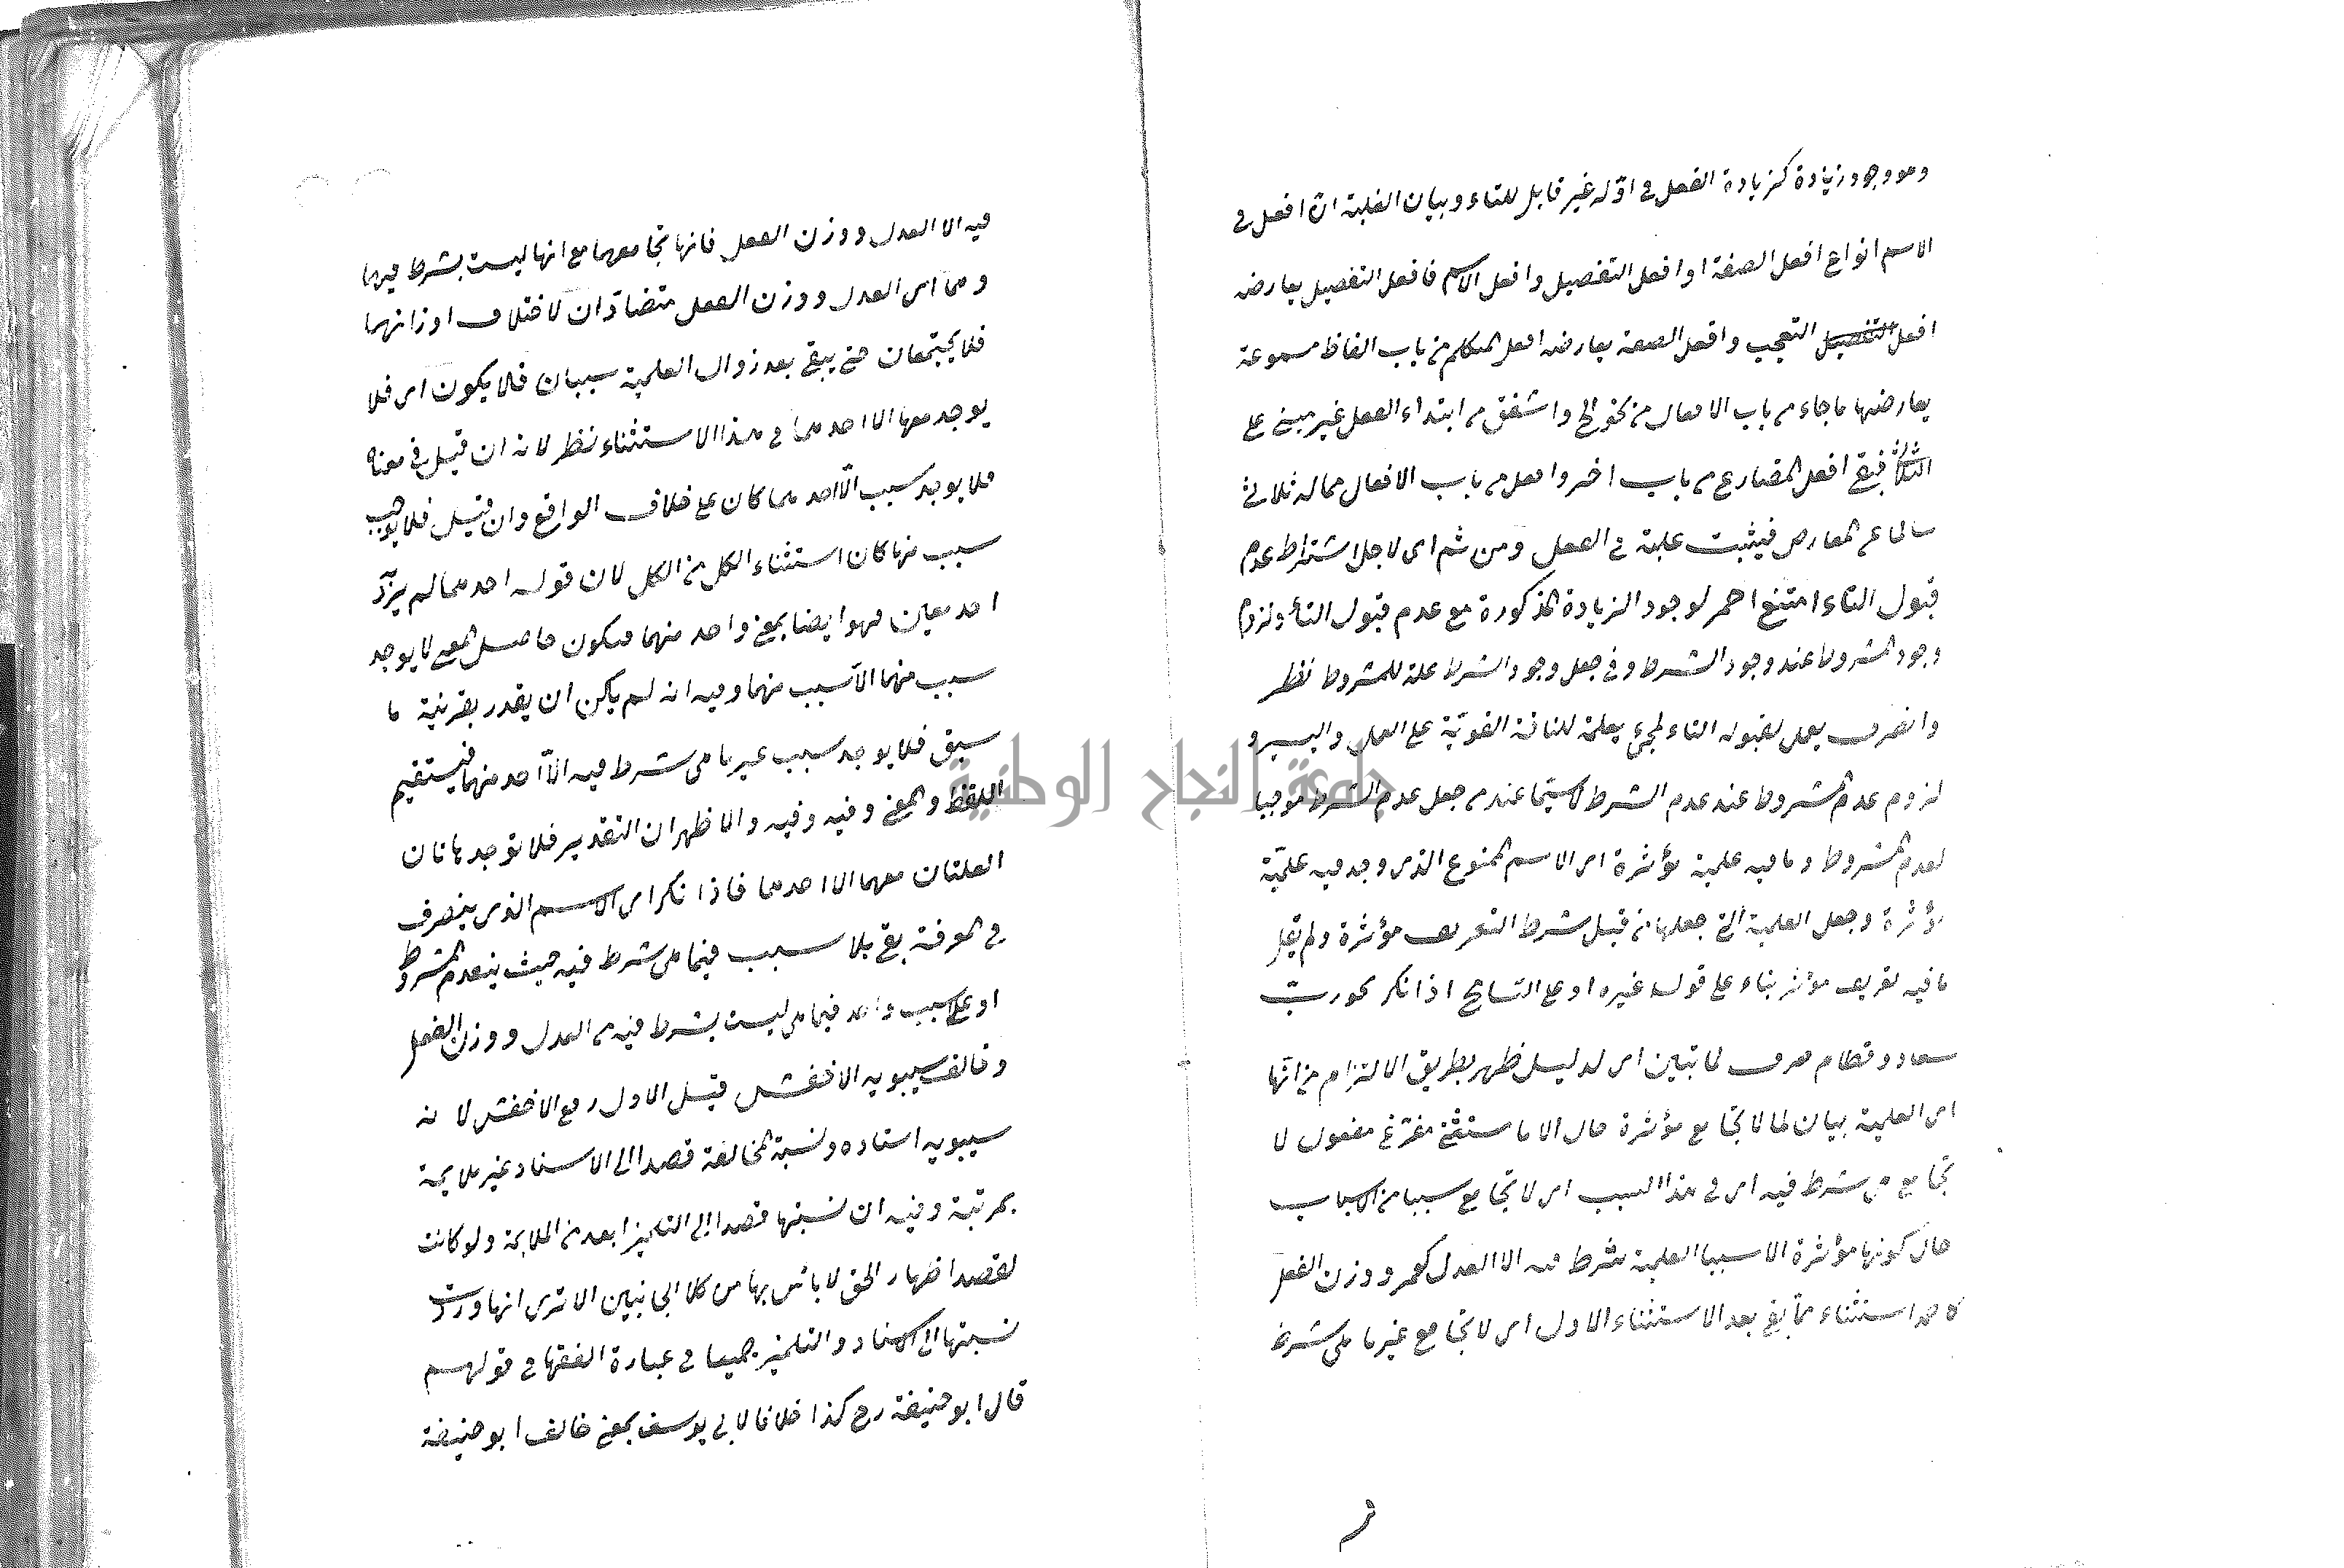 وهو وجود زيادة كزيادة الفعل في اوّله غير قابل للتاء وبيان الغلبة انّ افعل في
الاسم انواع افعل الصفة او افعل التفضيل وافعل الاسم فافعل التفضيل يعارضه
افعل التفضيل التعجب وافعل الصفة يعارضه افعل المتكلم من باب الفاظ مسموعة
يعارضها ما جاء من باب الافعال من نحو واشفق من ابتداء الفعل غير مبني على
الثلاثي فبقي افعل المضارع من باب اخر وافعل من باب الافعال مما له ثلاثي
سالما عن المعارض فيثبت غلبة في الفعل ومن ثم اى لاجل اشتراط عدم
قبول التاء امتنع احمر لوجود الزيادة المذكورة مع عدم قبول التاء ولزوم
وجود المشروط عند وجود الشرط وفي جعل وجود الشرط علة للمشروط نظر
وانصرف يعمل لقبوله التاء لمجيئ يعملة للناقة القويّة على العمل والسير و
لزوم عدم المشروط عند عدم الشرط لا سيّما عند من جعل عدم الشرط موجبا
لعدم المشروط وما فيه علمية مؤثرة اى الاسم الممنوع الذى وجد فيه علميّة
مؤثرة وجعل العلمية التي جعلها من قبل شرط التعريف مؤثرة ولم يقل
ما فيه تعريف مؤثر بناء على قوله غيره او على التسامح اذا نكر نحو ربّ
سعاد وقطام صرف لما تبين اى لدليل ظهر بطريق الالتزام من انّها
اى العلمية بيان لما لا تجامع مؤثرة حال الا ما مستثنى مفرّغ مفعول لا
تجامع هى شرط فيه اى في هذا السبب اى لا تجامع سببا من الاسباب
حال كونها مؤثرة الا سببا العلمية شرط فيه الا العدل كعمر ووزن الفعل
كاحمد استثناء ممّا بقي بعد الاستثناء الاول اى لا تجامع غير ما هى شرط
فيه الا العدل ووزن الفعل فانها تجامعهما مع انها ليست بشرط فيهما
وهما اى العدل ووزن الفعل متضادّان لاختلاف اوزانهما
فلا يجتمعان حتى يبقى بعد زوال العلمية سببان فلا يكون اى فلا
يوجد معها الا احدهما في هذا الاستثناء نظر لانه ان قيل في معناه
فلا يوجد سبب الّا احدهما كان على خلاف الواقع وان قيل فلا يوجد
سبب منهما كان استثناء الكل من الكل لان قوله احدهما لم يرد
احد معين فهو ايضا بمعنى واحد منهما فيكون حاصل المعنى لا يوجد
سبب منهما الّا سبب منهما وفيه انه لم يكن ان يقدر بقرينة ما
سبق فلا يوجد سبب غير ما هى شرط فيه الّا احد منهما فيستقيم
اللفظ والمعنى وفيه وفيه والاظهر ان التقدير فلا توجد هاتان
العلتان معهما الا احدهما فاذا نكر اى الاسم الذى ينصرف
في المعرفة بقي بلا سبب فيما هى شرط فيه حيث ينعدم المشروط
او على سبب واحد فيما هى ليست بشرط فيه من العدل ووزن الفعل
وخالف سيبويه الاخفش قيل الاول رفع الاخفش لانه
سيبويه استاده ونسبة المخالفة قصدا الى الاستاد غير ملايمة
بمرتبة وفيه ان نسبتها قصدا الى التلميذ ابعد من الملايمة ولو كانت
لقصد اظهار الحق لا باس بها من كلا الجانبين الا ترى انها وردت
نسبتها الى الاستاد والتلميذ جميعا في عبارة الفقها في قولهم
قال ابو حنيفة رح كذا خلافا لابى يوسف بمعنى خالف ابو حنيفة
جامعة النجاح الوطنية